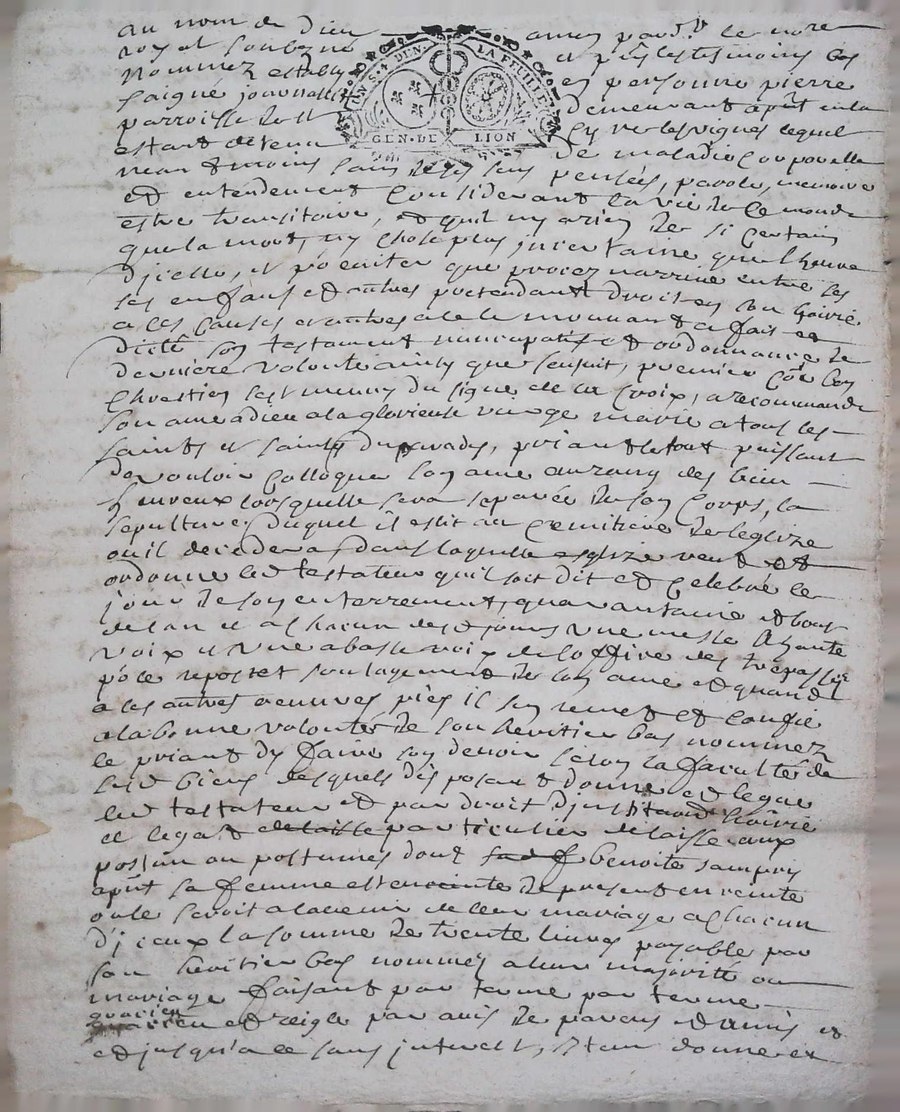 au nom de Dieu amen pard.t le no.re
royal soubzne et p̃ns les tesmoins bas
nommez estably en personne pierre
Saigne journallier demeurant ap̃nt en la
parroisse de st cyre les vignes lequel
UN S. 4 DEN. LA FEUILLE
GEN. DE LION
estant detenu de maladie corporelle
neantmoins sain de ses sens pensees, parole, memoire
et entendement considerant la vie de ce monde
estre transitoire, et quil ny a rien de si certain
que la mort, ny chose plus incertaine que lheure
dicelle, et p̃o eviter que procez narrive entre les
ses enfans et autres pretendant droit en son hoirie
a ces causes et autres a ce le mouvant a fait et
dicté son testament nuncupatif et ordonnance de
derniere volonte ainsy que sensuit, premier co͠e bon
Chrestien sest muny du signe de la croix, a recommandé
son ame a dieu a la glorieuse vierge marie a tous les
saints et saintes du paradis, priant le tout puissant
de vouloir colloquer son ame au rang des bien
heureux lorsquelle sera separée de son corps, la
sepulture duquel il eslit au cemitiere de leglize
ou il decedera, dans laquelle esglize veut et
ordonne led testateur quil soit dit et celebré le
jour de son enterrement, quarantaine et bout
de lan et a chacun desd jours une messe a haute
voix et une a basse voix de loffice des trepassés
p̃o le repos et soulagement de son ame et quand
a ses autres oeuvres pies il sen remet et confie
a la bonne volonte de son heritier bas nommez
le priant dy faire son devoir selon la faculté de
sesd biens desquels disposant donne et legue
led testateur et par droit dinstitution hoirie
et legat delaisse particulier delaisse aux
postum ou postumes dont benoite
ap̃nt sa femme est enceinte de present enceinte
ou le seroit a ladvenir de leur mariage a chacun
diceux la somme de trente livres payable par
son heritier bas nommez a leur majorité ou
mariage faisant par terme par terme
quarien
et reigle par avis de parens damis et
et jusqu'a ce sans interest, Item donne et